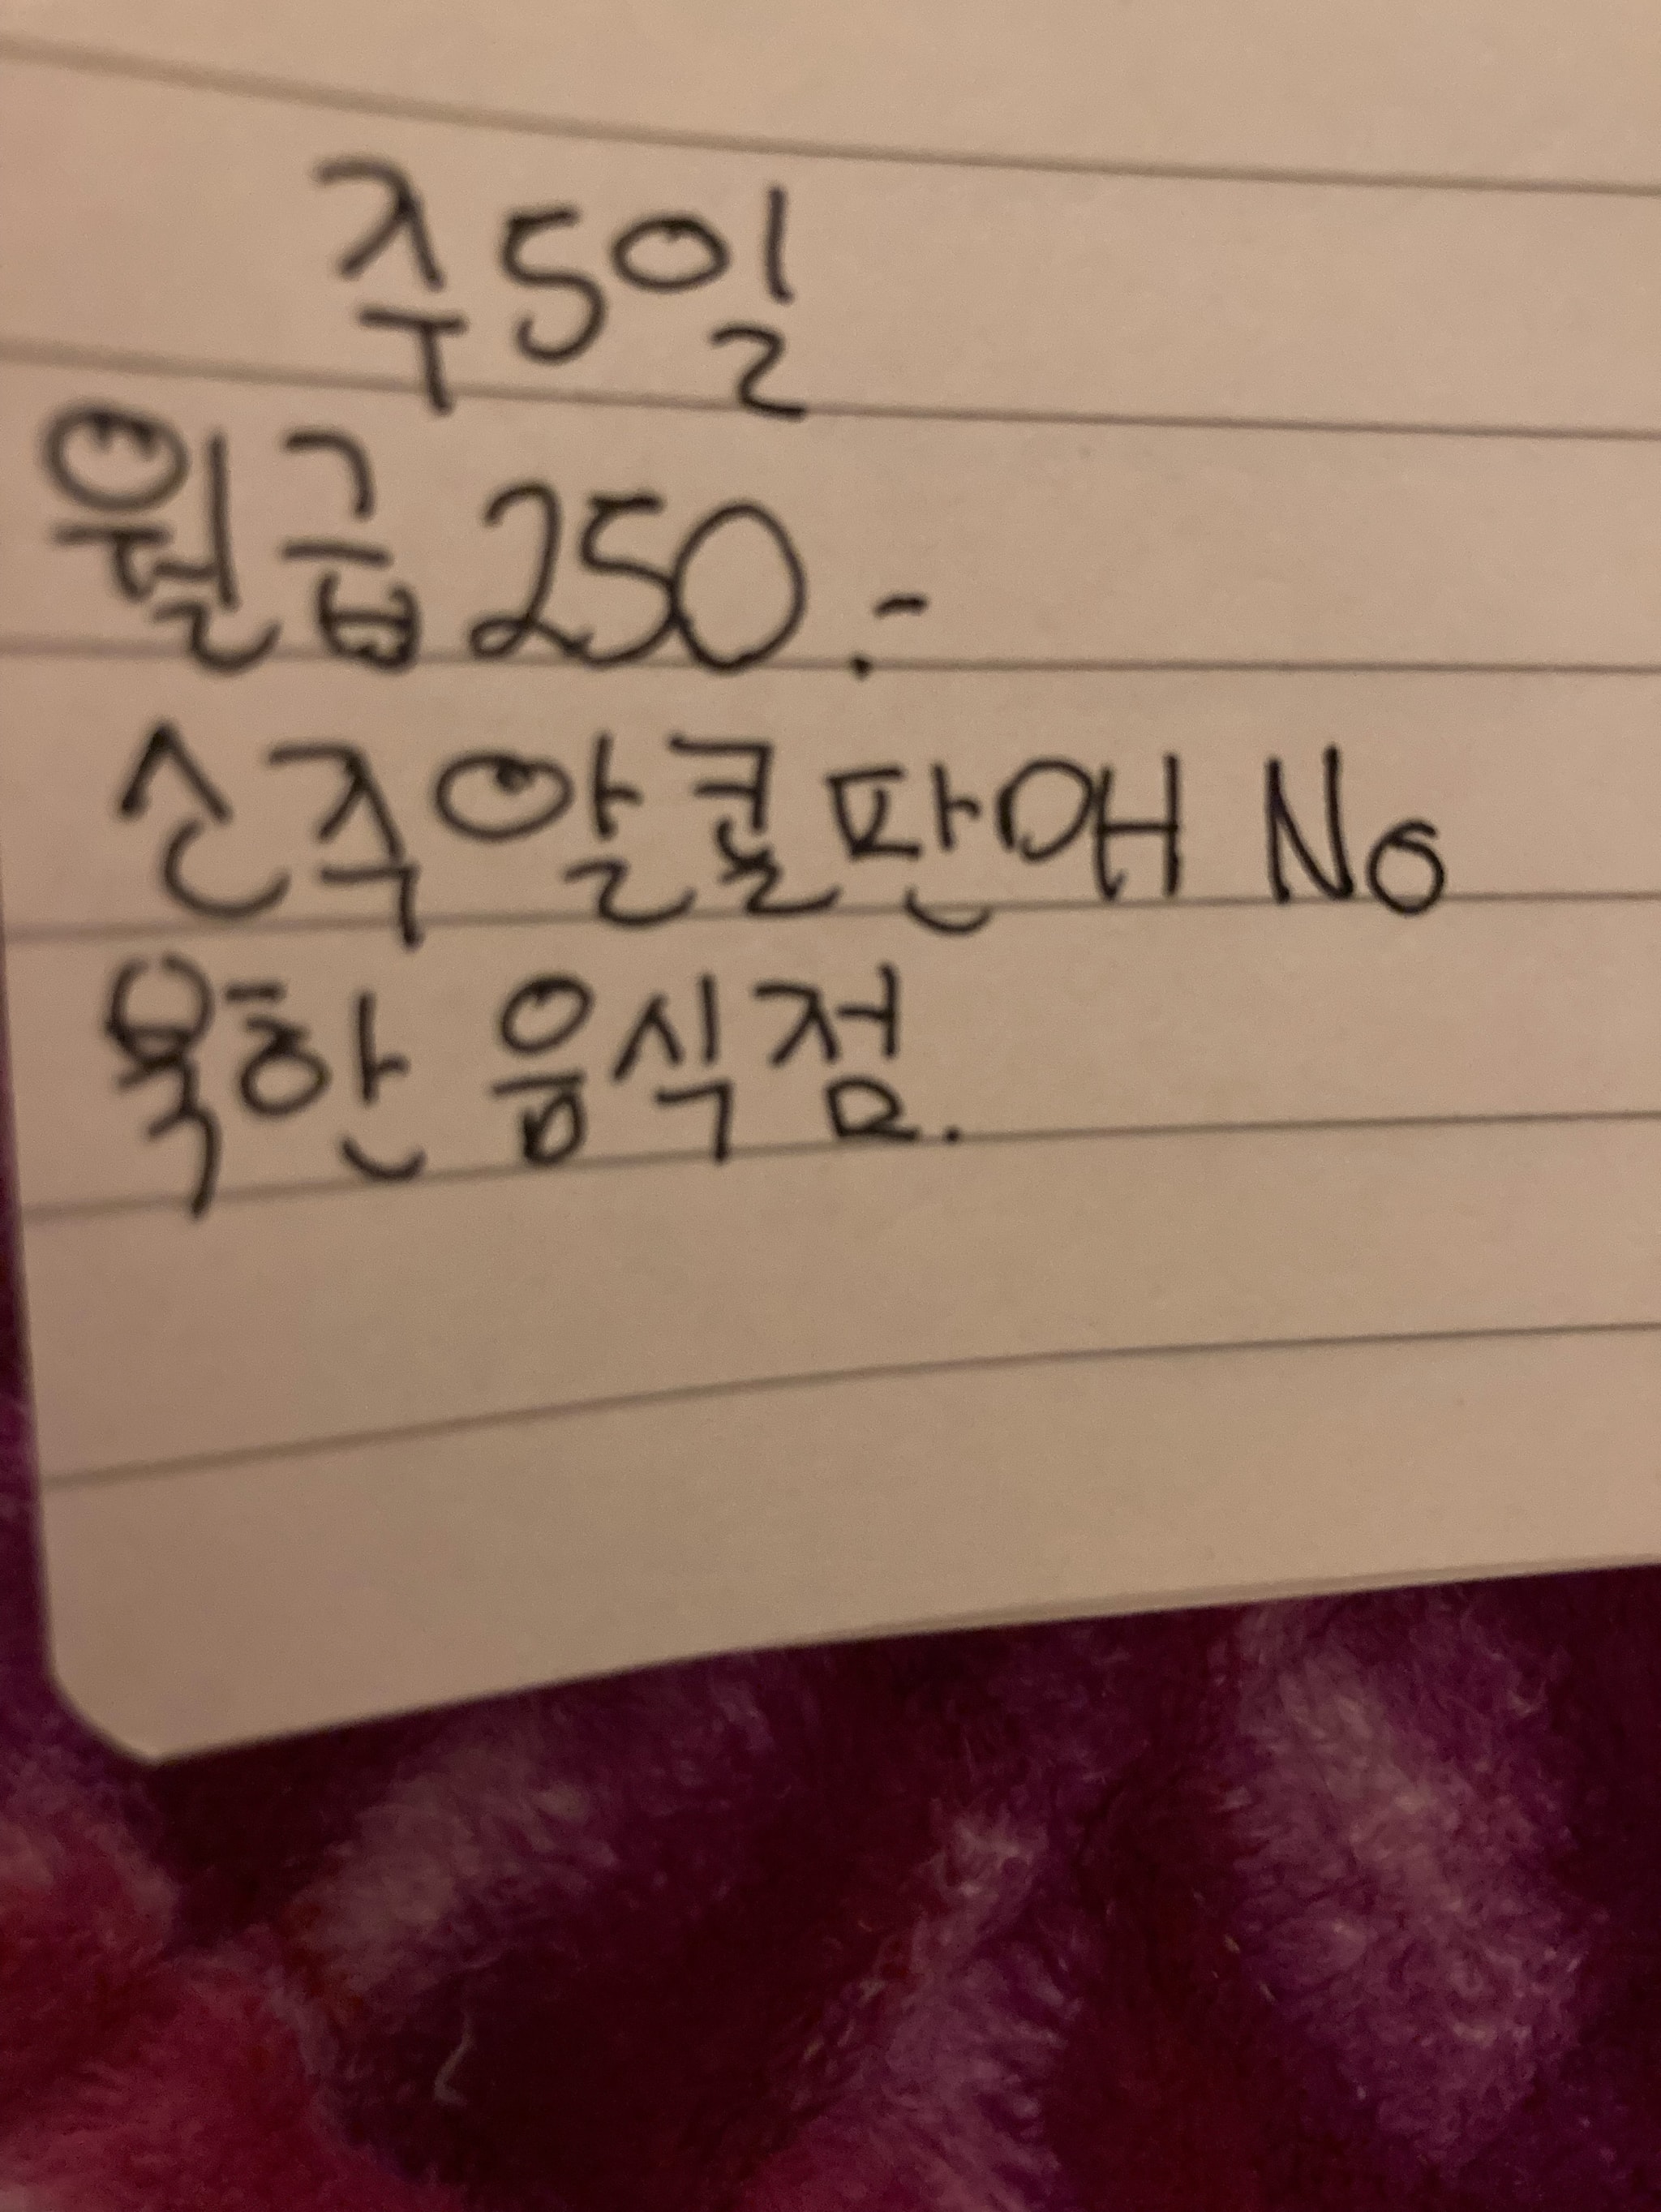 주5일
월급 250.-
소주알콜판매 No
음식점.